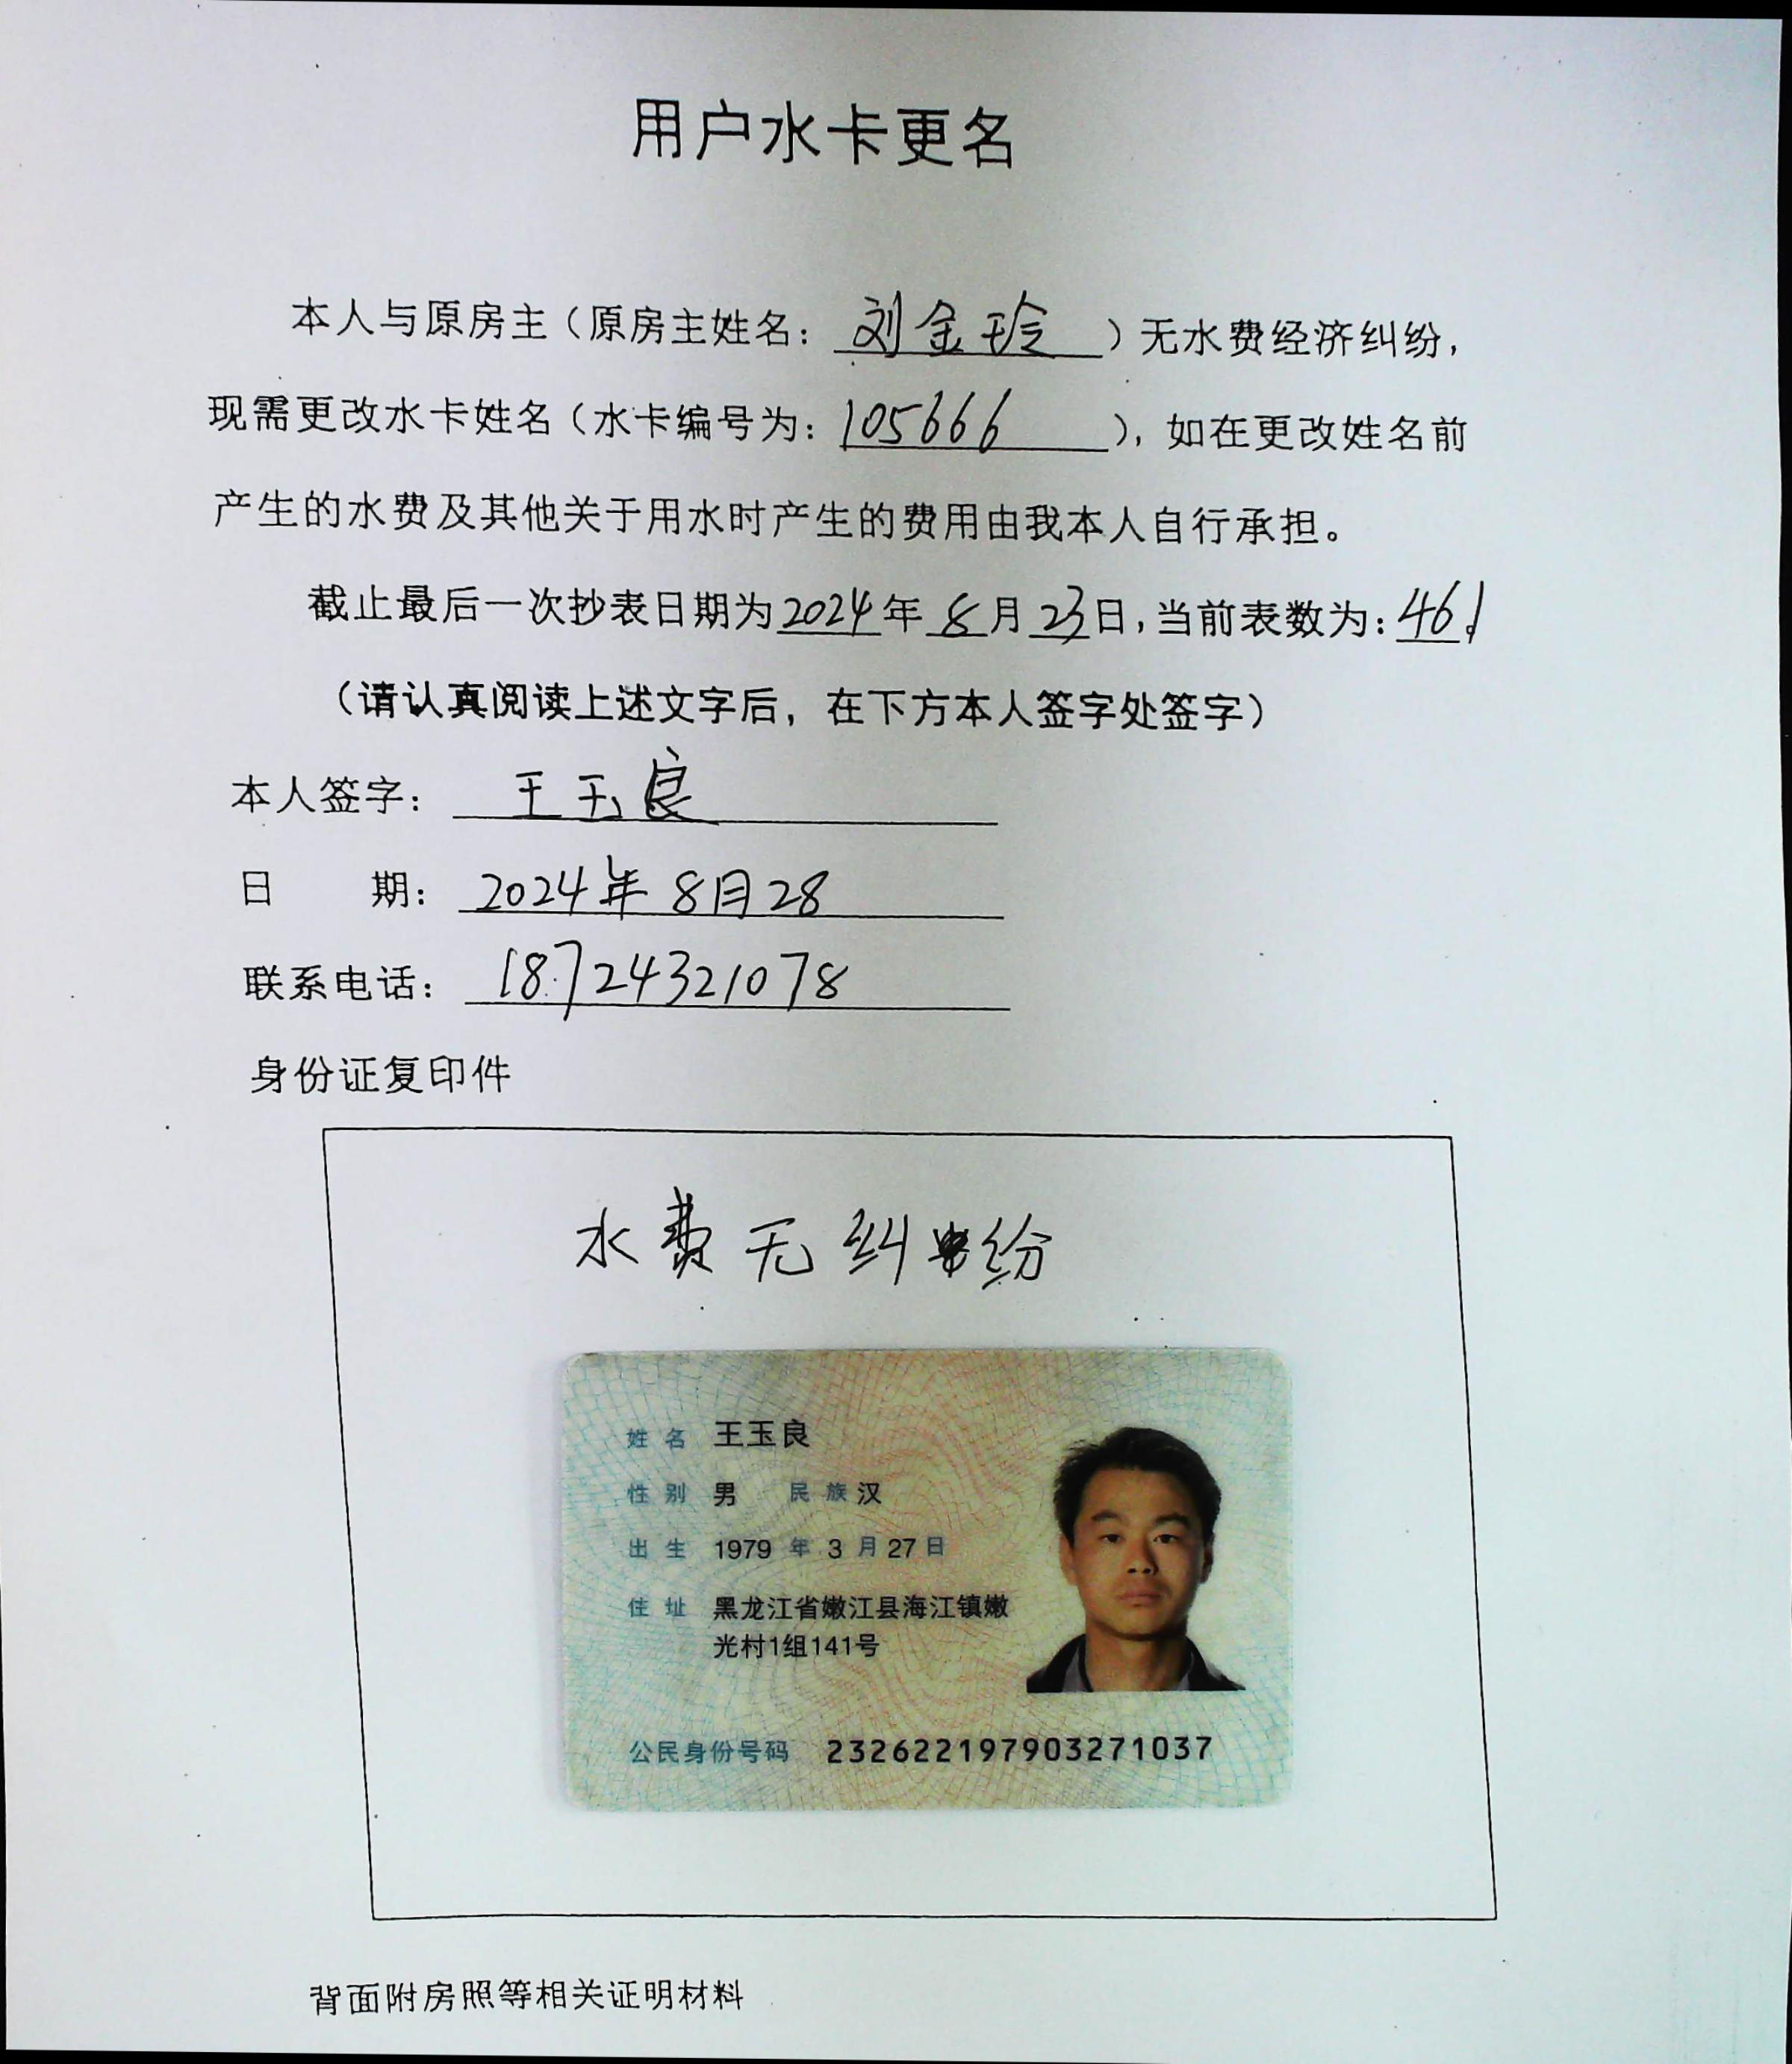 用户水卡更名
本人与原房主（原房主姓名：刘金玲）无水费经济纠纷，
现需更改水卡姓名（水卡编号为：105666），如在更改姓名前
产生的水费及其他关于用水时产生的费用由我本人自行承担。
截止最后一次抄表日期为2024年8月23日，当前表数为：461。
（请认真阅读上述文字后，在下方本人签字处签字）
本人签字：王玉良
日期：2024年8月28
联系电话：18724321078
身份证复印件
水费无纠纷
姓名 王玉良
性别 男 民族 汉
出生 1979年3月27日
住址 黑龙江省嫩江县海江镇嫩
光村1组141号
公民身份号码 232622197903271037
背面附房照等相关证明材料